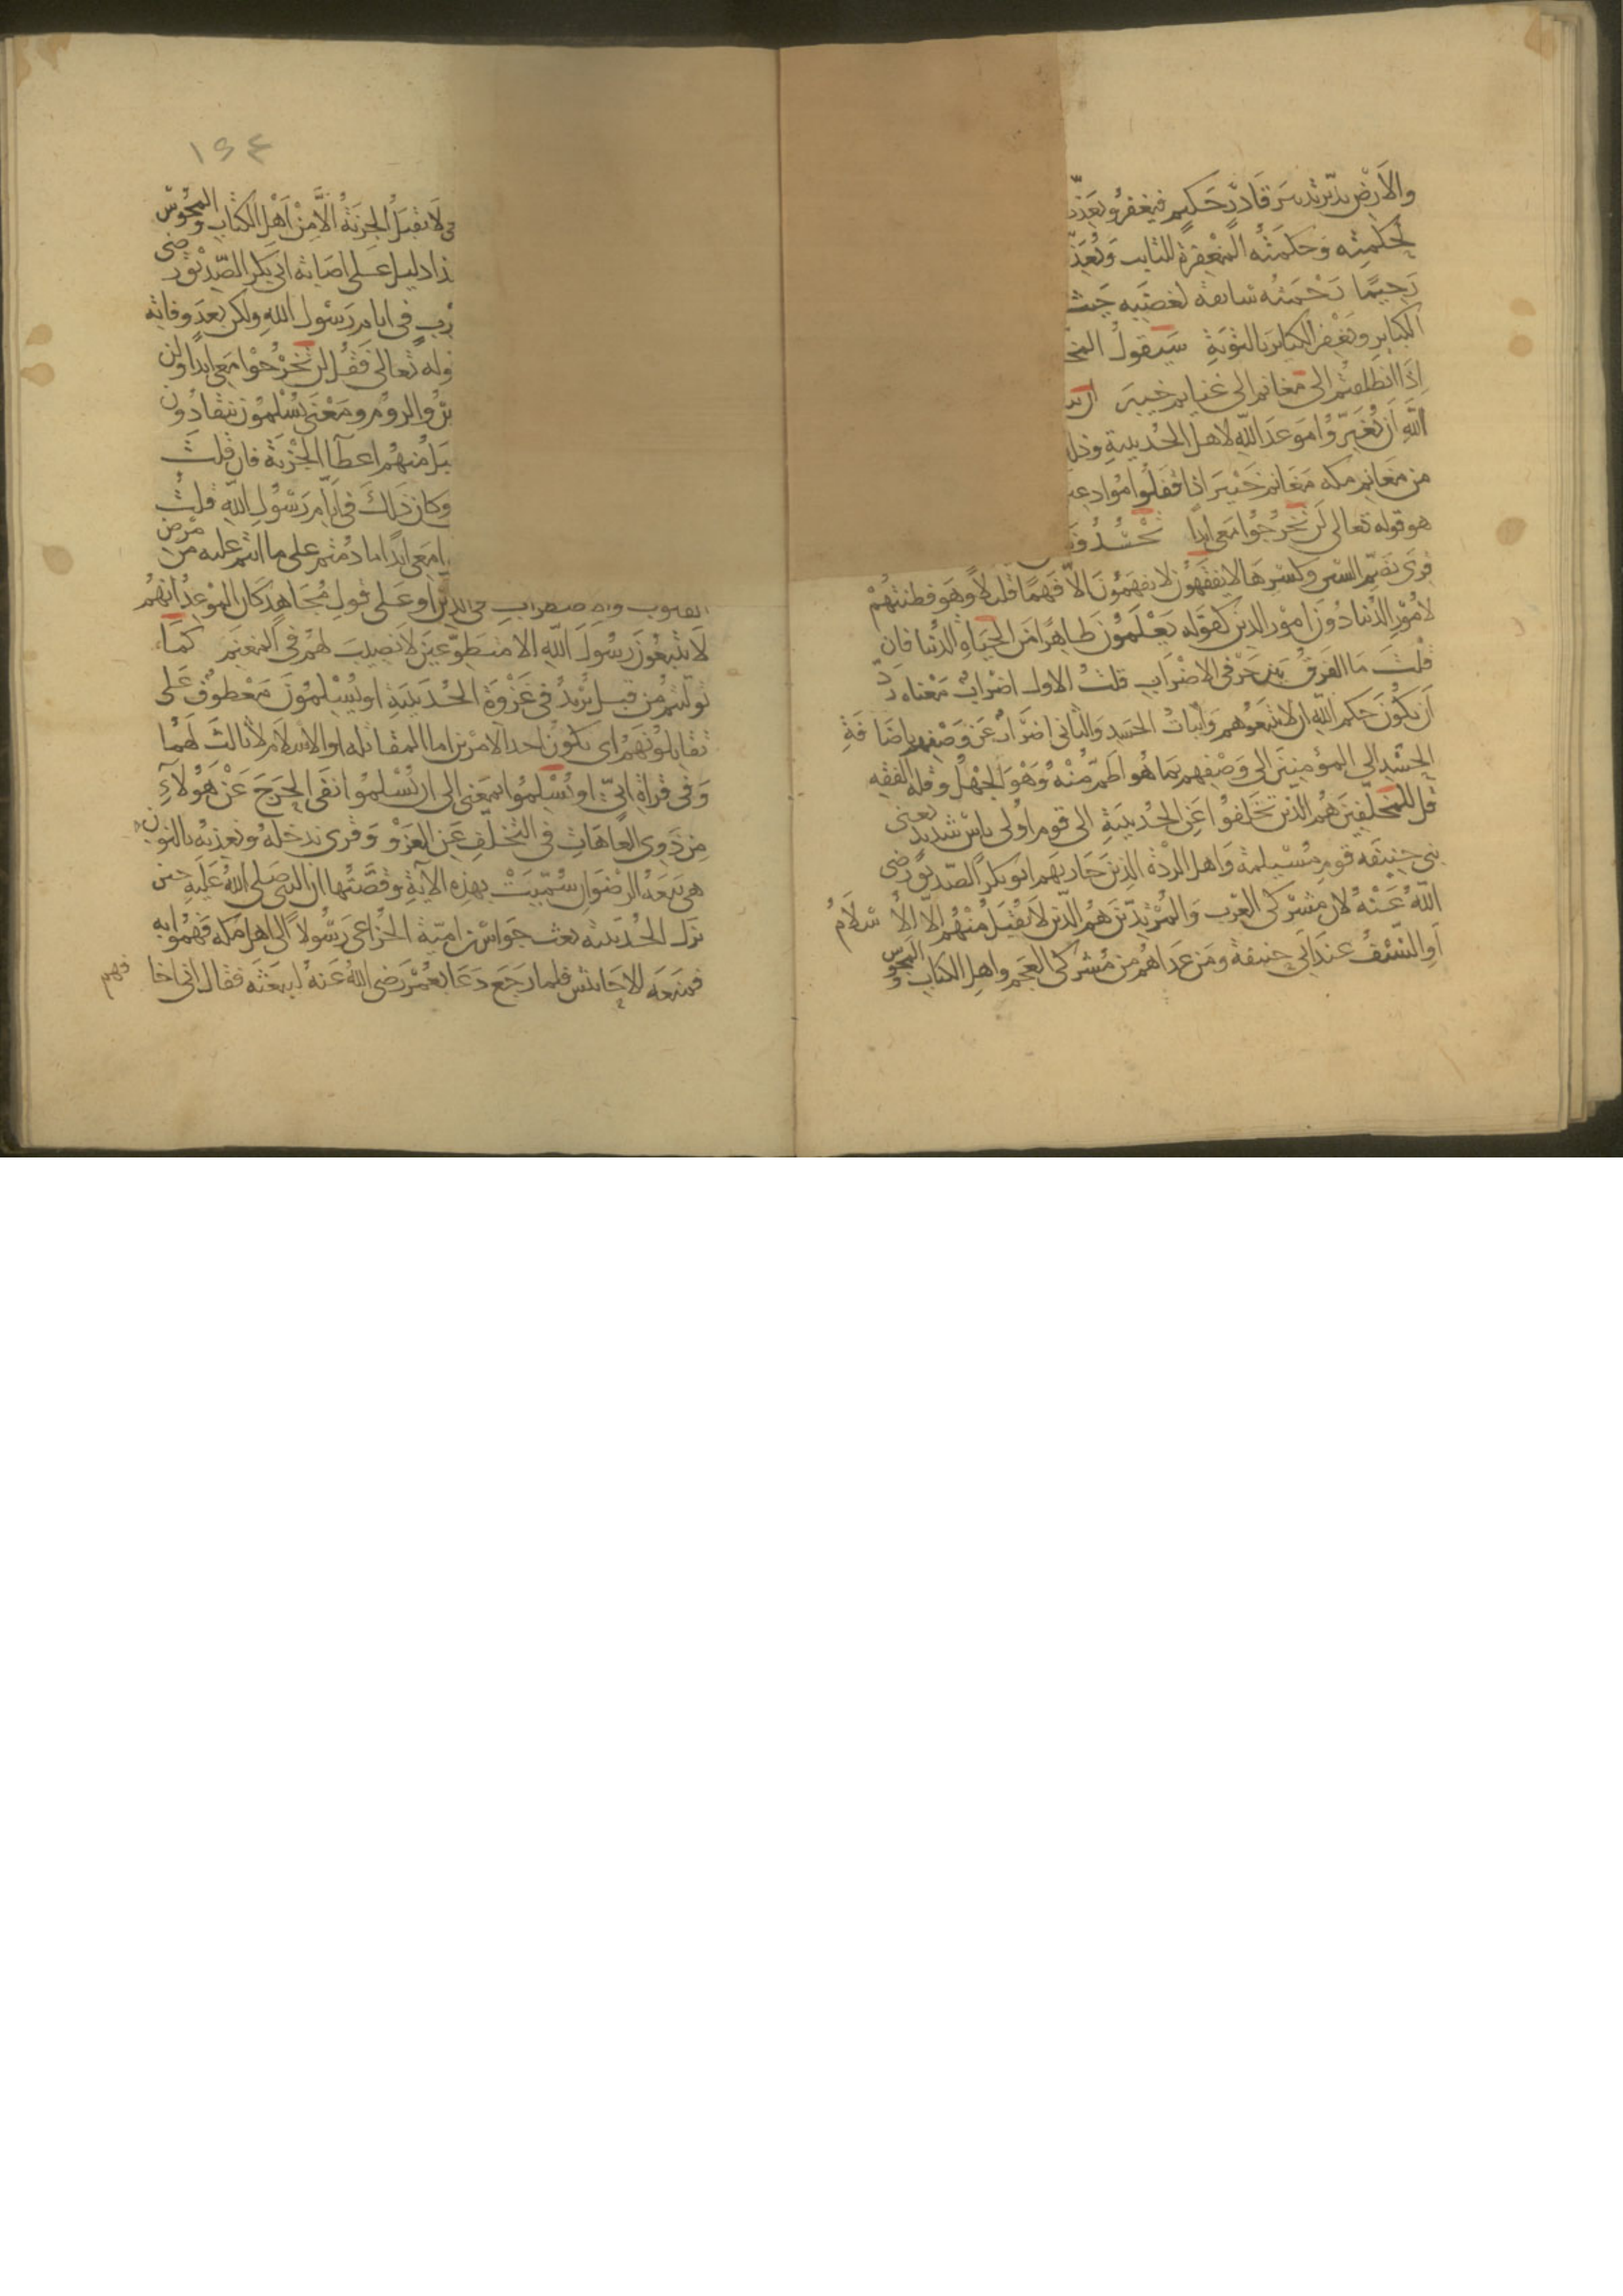 والارض يدبره تدبير قادر حكيم فيغفر ويعذب
لحكمته وحكمته المغفرة للتايب وتعذ
رحيما رحمته سابقة لغضبه حيث
الكباير ويغفر الكباير بالتوبة سيقول المخ
اذا انطلقتم الى مغانم الى غنايم خيبر
الله ان تغيروا موعد الله لاهل الحديبية وذلك
من مغانم مكه مغانم خيبر اذا قفلوا موادعين
هو قوله تعالى لن تخرجوا معى ابدا تحسدوننا
قرى بضم السين وكسرها لا يفقهون لا يفهمون الا فهما قليلا وهو فطنتهم
لامور الدنيا دون امور الدين كقوله يعلمون ظاهرا من الحياة الدنيا فان
قلت ما الفرق بين حرفى الاضراب قلت الاول اضراب معناه رد
ان يكون حكم الله ان لا تتبعوهم واثبات الحسد والثانى اضراب عن وصفهم باضافة
الحسد الى المؤمنين الى وصفهم بما هو اطم منه وهو الجهل وقلة الفقه
قل للمخلفين هم الذين تخلفوا عن الحديبية الى قوم اولى باس شديد يعنى
بنى حنيفه قوم مسيلمة واهل الردة الذين حاربهم ابو بكر الصديق رضى
الله عنه لان مشركى العرب والمرتدين هم الذين لا يقبل منهم الا الاسلام
او السيف عند ابى حنيفة ومن عداهم من مشركى العجم واهل الكتاب والمجوس
١٦٤
فى لا تقبل الجزية الا من اهل الكتاب والمجوس
ذا دليل على اصابة ابى بكر الصديق رضى
رب فى ايام رسول الله ولكن بعد وفاته
وله تعالى فقل لن تخرجوا معى ابدا ولن
والروم ومعنى يسلمون ينقادون
يل منهم اعطا الجزية فان قلت
وكان ذلك فى ايام رسول الله قلت
ا معى ابدا ما دمتم على ما انتم عليه من مرض
القلوب والاضطراب فى الدين او على قول مجاهد كان الموعد انهم
لا يتبعون رسول الله الا متطوعين لا نصيب لهم فى المغنم كما
توليتم من قبل يريد فى غزوة الحديبية او يسلمون معطوف على
تقاتلونهم اى يكون احد الامرين اما المقاتله او الاسلام لا ثالث لهما
وفى قراة ابى او يسلموا بمعنى الى ان يسلموا نفى الحرج عن هولاء
من ذوى العاهات فى التخلف عن الغزو وقرى ندخله ونعذبه بالنون
هى بيعة الرضوان سميت بهذه الآية وقصتها ان النبى صلى الله عليه حين
نزل الحديبية بعث جواس بن امية الخزاعى رسولا الى اهل مكه فهموا به
فمنعه الاحابيش فلما رجع دعا بعمر رضى الله عنه ليبعثه فقال انى اخا
فهم